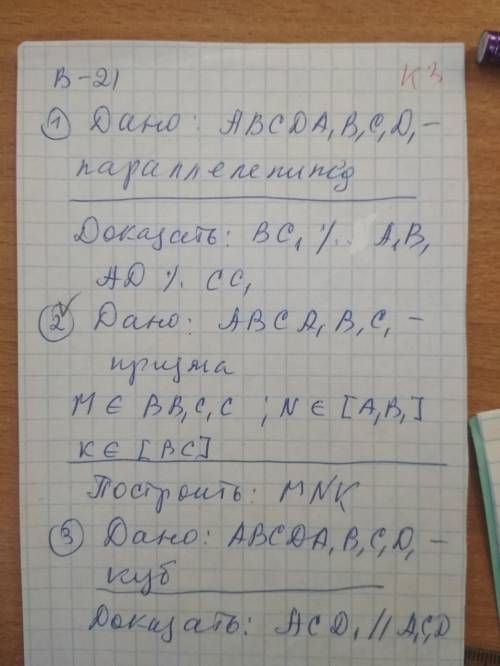 В-21 К3
① Дано: ABCDA₁B₁C₁D₁ -
параллелепипед
Доказать: BC₁ ∸ A₁B₁
AD ∸ CC₁
② Дано: ABCA₁B₁C₁ -
призма
M ∈ BB₁C₁C ; N ∈ [A₁B₁]
K ∈ [BC]
Построить: MNK
③ Дано: ABCDA₁B₁C₁D₁ -
куб
Доказать: ACD₁ // A₁C₁D